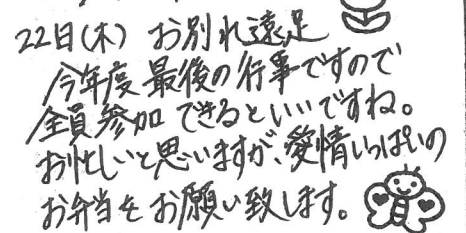 22日(木) お別れ遠足
今年度最後の行事ですので
全員参加できるといいですね。
お忙しいと思いますが、愛情いっぱいの
お弁当をお願い致します。